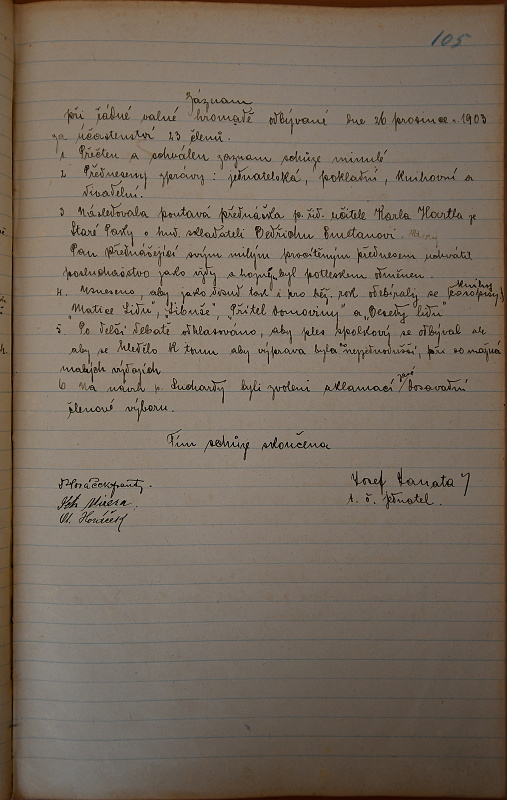 105
Záznam
při řádné valné hromadě odbývané dne 26 prosince 1903
za účastenství 23 členů.
1 Přečten a schválen záznam schůze minulé
2 Předneseny zprávy: jednatelská, pokladní, knihovní a
divadelní.
3 Následovala poutavá přednáška p. říd. učitele Karla Hartla ze
Staré Paky o hud. skladateli Bedřichu Smetanovi.
Pan přednášející svým milým procítěným přednesem
posluchačstvo jako vždy a hojným byl potleskem odměněn.
4. Usneseno, aby jako dosud tak i pro běž. rok odebíraly se knihy (časopisy)
"Matice Lidu", "Libuše", "Přítel Domoviny" a "Besedy lidu"
5 Po delší debatě odhlasováno, aby ples spolkový se odbýval ale
aby se hledělo k tomu aby výprava byla nejjednodušší, při co možná
malých výdajích.
6 Na návrh p. Suchardy byli zvoleni aklamací zase dosavadní
členové výboru.
Tím schůze skončena
Josef Hanata
t. č. jednatel.
Horáček